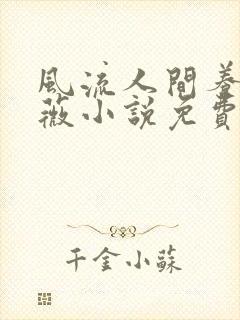 風流人間養
薇小說免費
千金小蘇